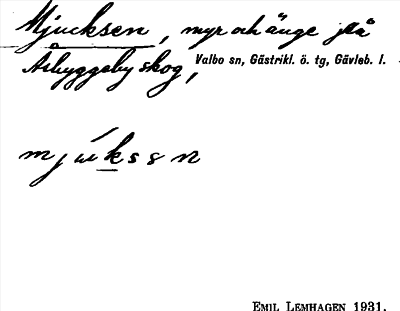 Mjucksen, myr och änge på
Åbyggeby skog, Valbo sn, Gästrikl. ö. tg, Gävleb. l.
mjukssn
EMIL LEMHAGEN 1931.